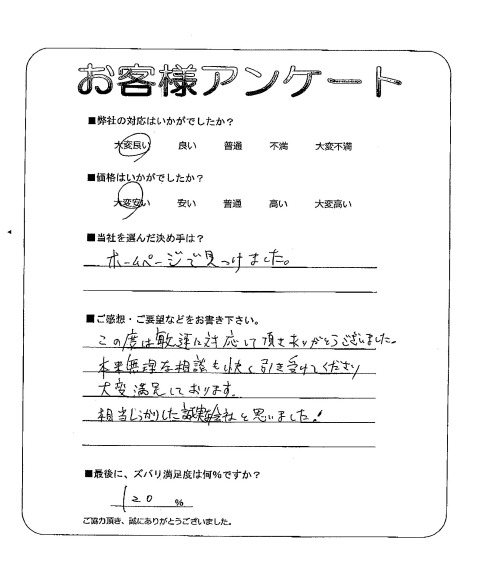 お客様アンケート
■弊社の対応はいかがでしたか？
大変良い 良い 普通 不満 大変不満
■価格はいかがでしたか？
大変安い 安い 普通 高い 大変高い
■当社を選んだ決め手は？
ホームページで見つけました。
■ご感想・ご要望などをお書き下さい。
この度は敏速に対応して頂きありがとうございました。
本来無理な相談も快く引き受けてくださり
大変満足しております。
相当しっかりした誠実な会社と思いました！
■最後に、ズバリ満足度は何％ですか？
120 ％
ご協力頂き、誠にありがとうございました。